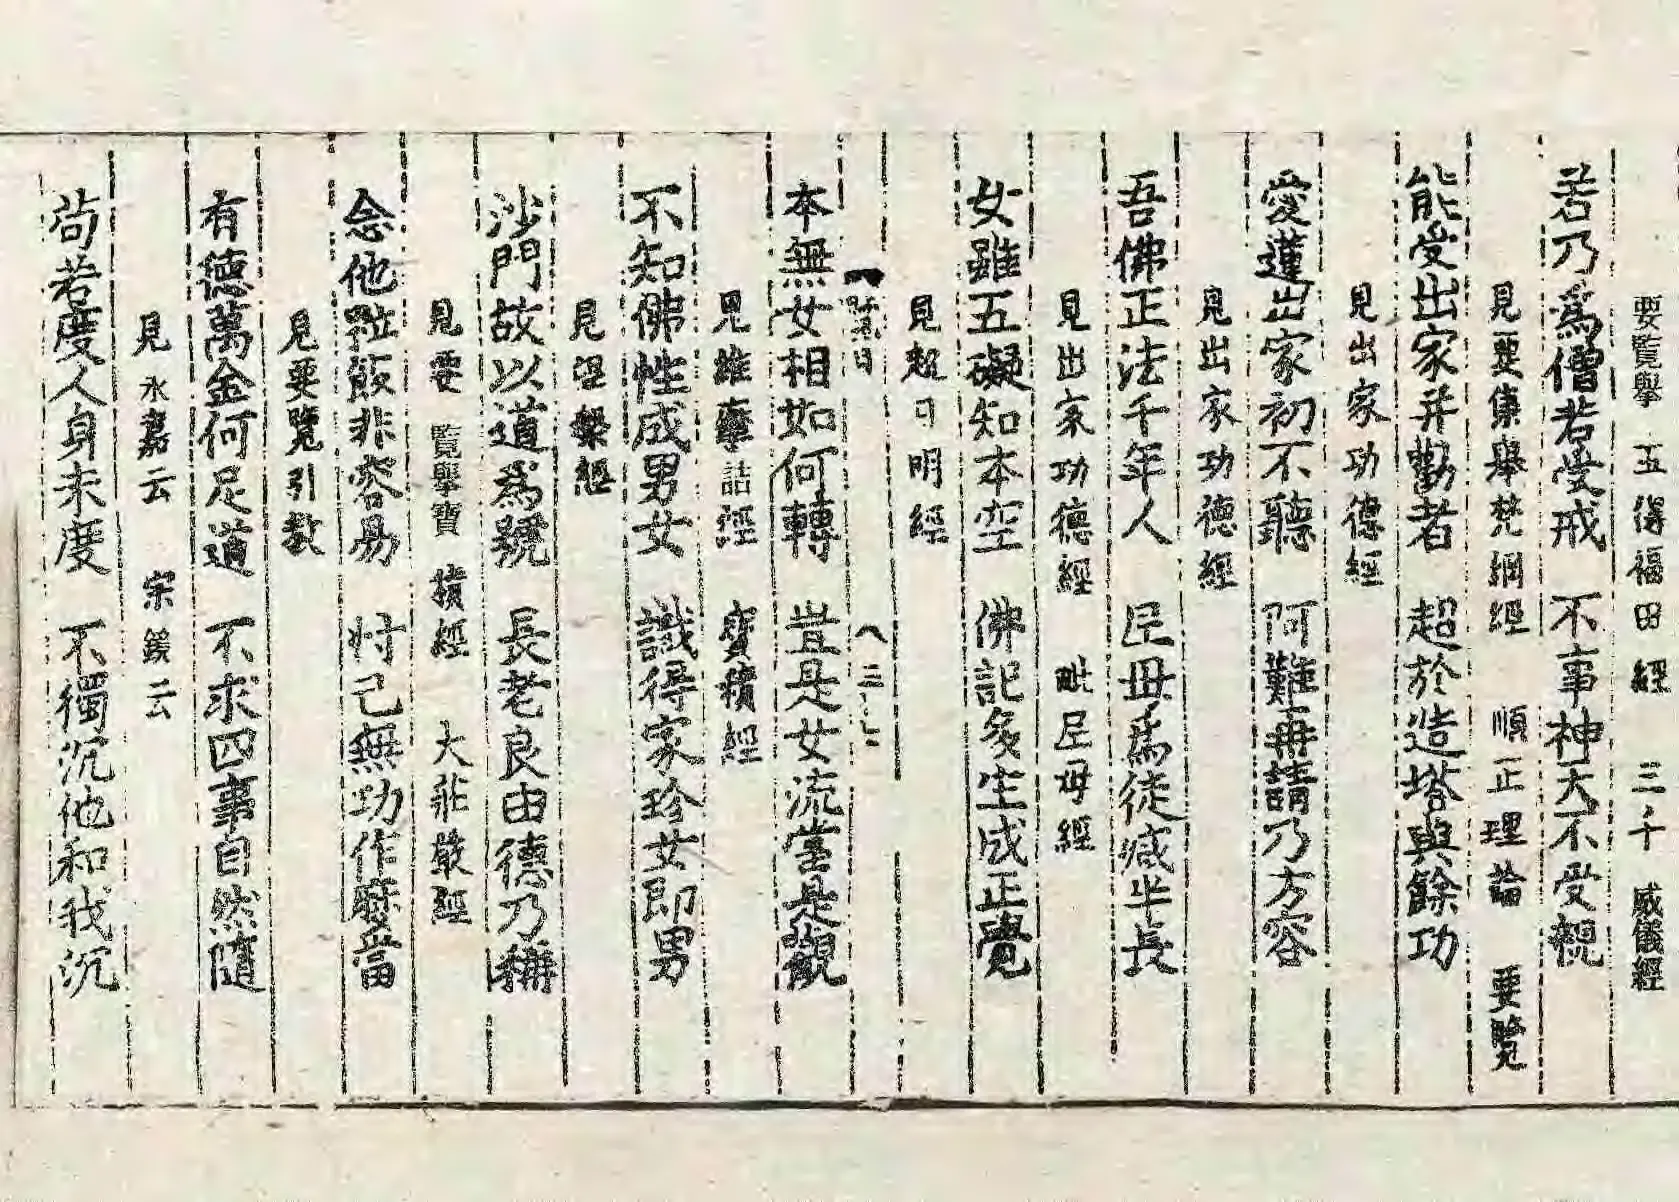 要覧舉 五得福田經 三千威儀經
若乃爲僧若受戒 不事神天不受親
見要集舉梵網經 順正理論 要覧
能受出家并勸者 超於造塔與餘功
見出家功德經
愛蓮出家初不聽 阿難再請乃方容
見出家功德經
吾佛正法千年人 尼母爲徒减半長
見出家功德經 毗尼母經
女雖五礙知本空 佛記多生成正覺
見超日明經
八 三 七
本無女相如何轉 豈是女流當是觀
見維摩詰經 寶積經
不知佛性成男女 識得家珍女即男
見涅槃經
沙門故以道爲號 長老良由德乃稱
見要覧舉寶積經 大莊嚴經
念他粒飯非容易 忖己無功作麽當
見要覽引教
有德萬金何足道 不求四事自然隨
見永嘉云 宗鏡云
苟若度人身未度 不獨沉他和我沉